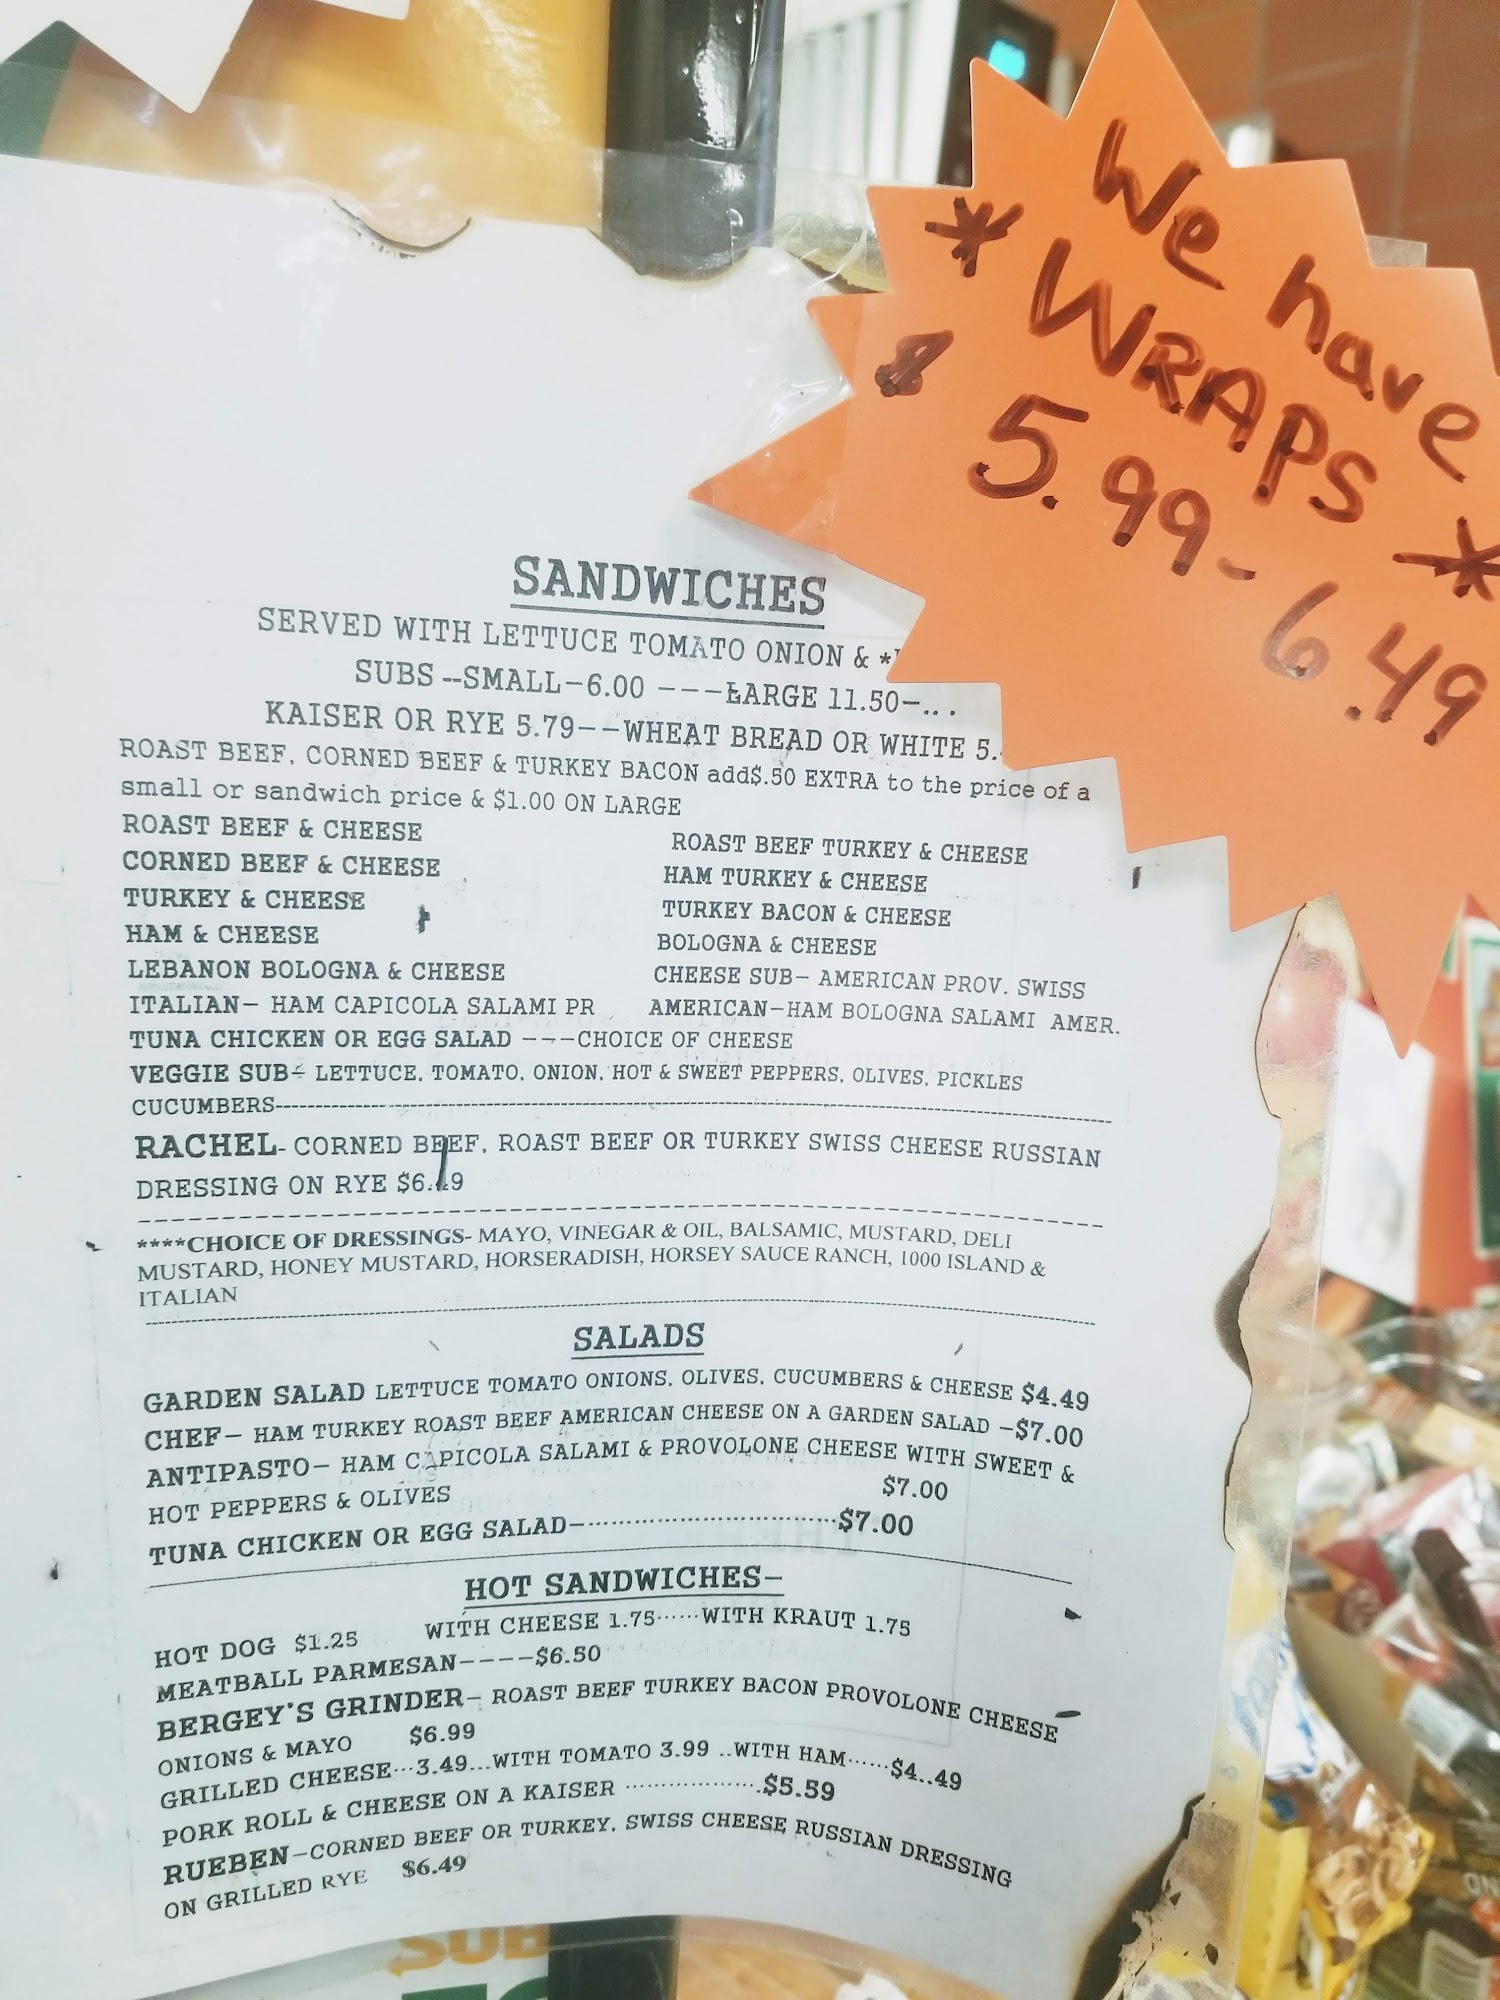 We have
* WRAPS *
$ 5.99-6.49
SANDWICHES
SERVED WITH LETTUCE TOMATO ONION & *
SUBS --SMALL-6.00 ---LARGE 11.50-...
KAISER OR RYE 5.79--WHEAT BREAD OR WHITE 5.
ROAST BEEF, CORNED BEEF & TURKEY BACON add$.50 EXTRA to the price of a
small or sandwich price & $1.00 ON LARGE
ROAST BEEF & CHEESE ROAST BEEF TURKEY & CHEESE
CORNED BEEF & CHEESE HAM TURKEY & CHEESE
TURKEY & CHEESE TURKEY BACON & CHEESE
HAM & CHEESE BOLOGNA & CHEESE
LEBANON BOLOGNA & CHEESE CHEESE SUB- AMERICAN PROV. SWISS
ITALIAN- HAM CAPICOLA SALAMI PR AMERICAN-HAM BOLOGNA SALAMI AMER.
TUNA CHICKEN OR EGG SALAD ---CHOICE OF CHEESE
VEGGIE SUB- LETTUCE, TOMATO, ONION, HOT & SWEET PEPPERS, OLIVES, PICKLES
CUCUMBERS
RACHEL- CORNED BEEF, ROAST BEEF OR TURKEY SWISS CHEESE RUSSIAN
DRESSING ON RYE $6.49
****CHOICE OF DRESSINGS- MAYO, VINEGAR & OIL, BALSAMIC, MUSTARD, DELI
MUSTARD, HONEY MUSTARD, HORSERADISH, HORSEY SAUCE RANCH, 1000 ISLAND &
ITALIAN
SALADS
GARDEN SALAD LETTUCE TOMATO ONIONS, OLIVES, CUCUMBERS & CHEESE $4.49
CHEF- HAM TURKEY ROAST BEEF AMERICAN CHEESE ON A GARDEN SALAD -$7.00
ANTIPASTO- HAM CAPICOLA SALAMI & PROVOLONE CHEESE WITH SWEET &
HOT PEPPERS & OLIVES $7.00
TUNA CHICKEN OR EGG SALAD-..............................$7.00
HOT SANDWICHES-
HOT DOG $1.25 WITH CHEESE 1.75......WITH KRAUT 1.75
MEATBALL PARMESAN----$6.50
BERGEY'S GRINDER- ROAST BEEF TURKEY BACON PROVOLONE CHEESE
ONIONS & MAYO $6.99
GRILLED CHEESE...3.49...WITH TOMATO 3.99 ..WITH HAM......$4..49
PORK ROLL & CHEESE ON A KAISER ...................$5.59
RUEBEN-CORNED BEEF OR TURKEY, SWISS CHEESE RUSSIAN DRESSING
ON GRILLED RYE $6.49
SUB